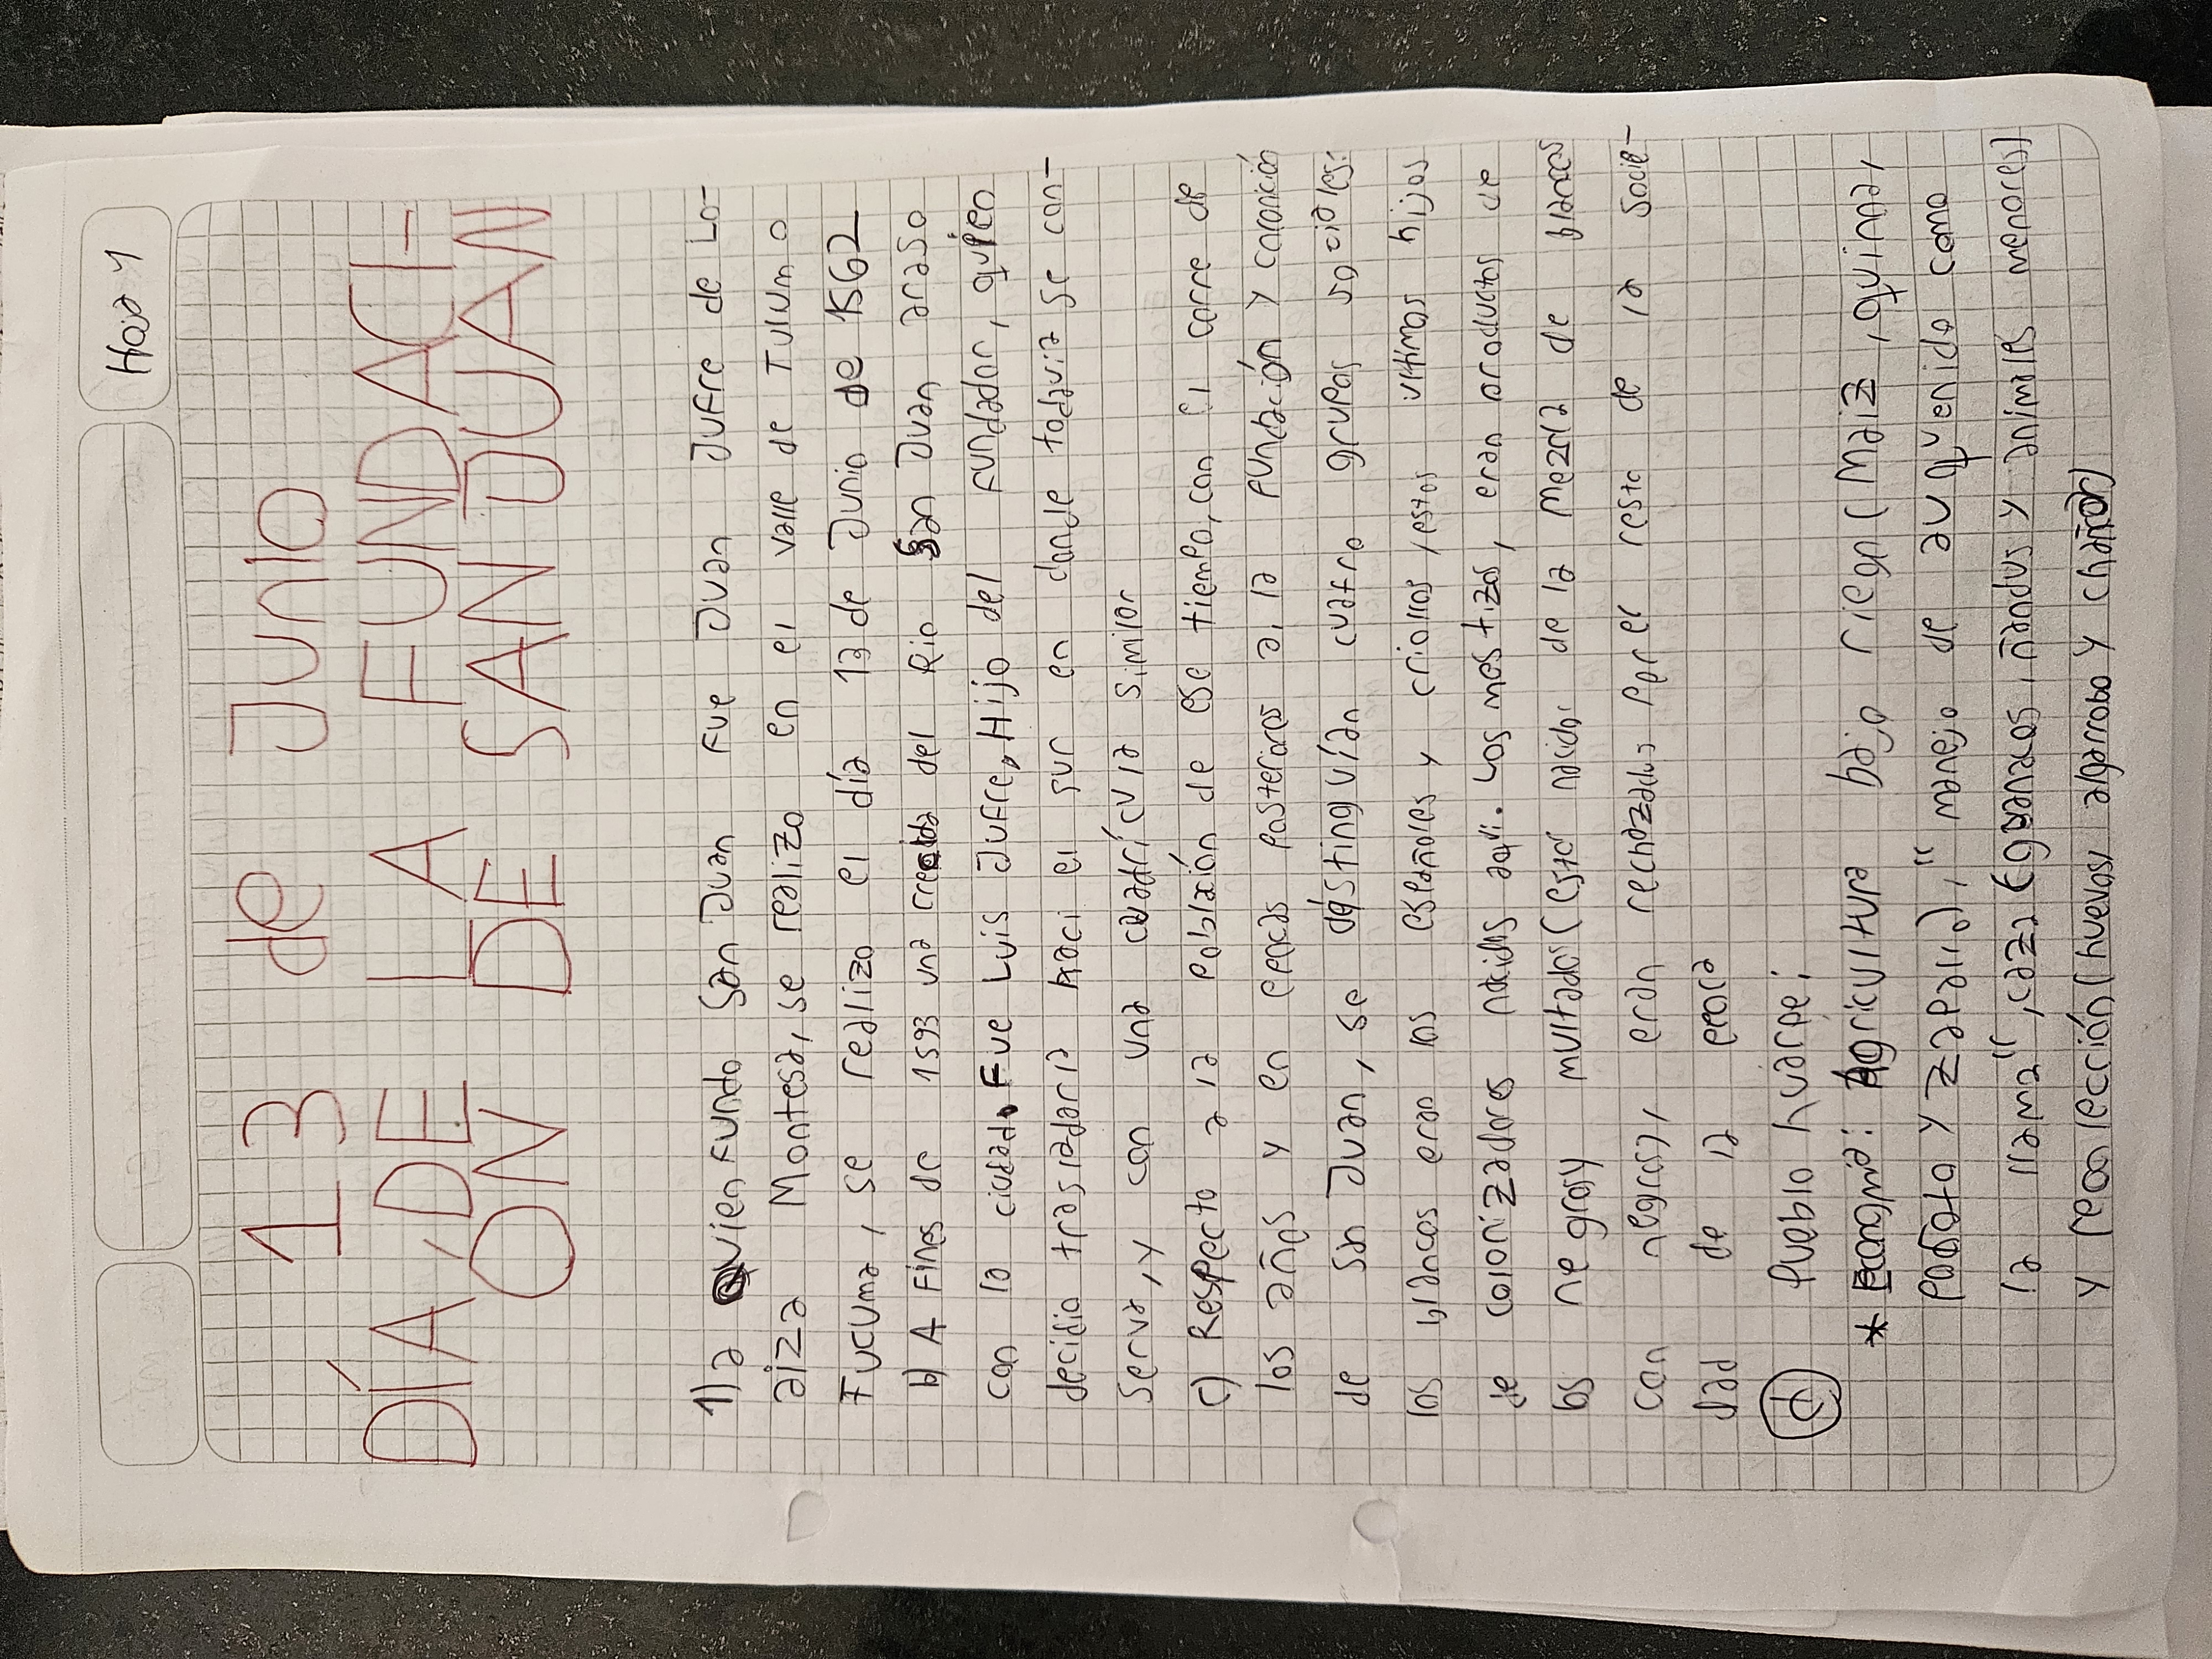 Hoja 1
13 de Junio
DÍA DE LA FUNDACI-
ÓN DE SAN JUAN
1) a Quien Fundo San Juan Fue Juan Jufre de Lo-
aiza Montesa, se realizo en el valle de Tulum o
Tucuma, se realizo el día 13 de Junio de 1562
b) A Fines de 1593 una crecida del Rio San Juan araso
con la ciudad. Fue Luis Jufre, Hijo del Fundador, quien
decidio trasladarla haci el sur en donde todavia se con-
serva, y con una cuadrícula similar
c) Respecto a la Población de ese tiempo, con el correr de
los años y en epocas Posteriores a la Fundación y
de San Juan, se distinguían cuatro grupos sociales:
los blancos eran los españoles y criollos, estos ultimos hijos
de colonizadores nacidos aquí. Los mestizos, eran productos de
los negros y multados (estos nacidos de la mezcla de blancos
con negros), eran rechazados Por el resto de la Socie-
dad de la epoca
d) Pueblo huarpe:
* Economia: Agricultura bajo riego (Maiz, quinua,
Poroto y zapallo), "manejo de auquenido como
la llama", caza (guanacos, ñandus y animales menores)
y recolección (huevos, algarrobo y chañar)